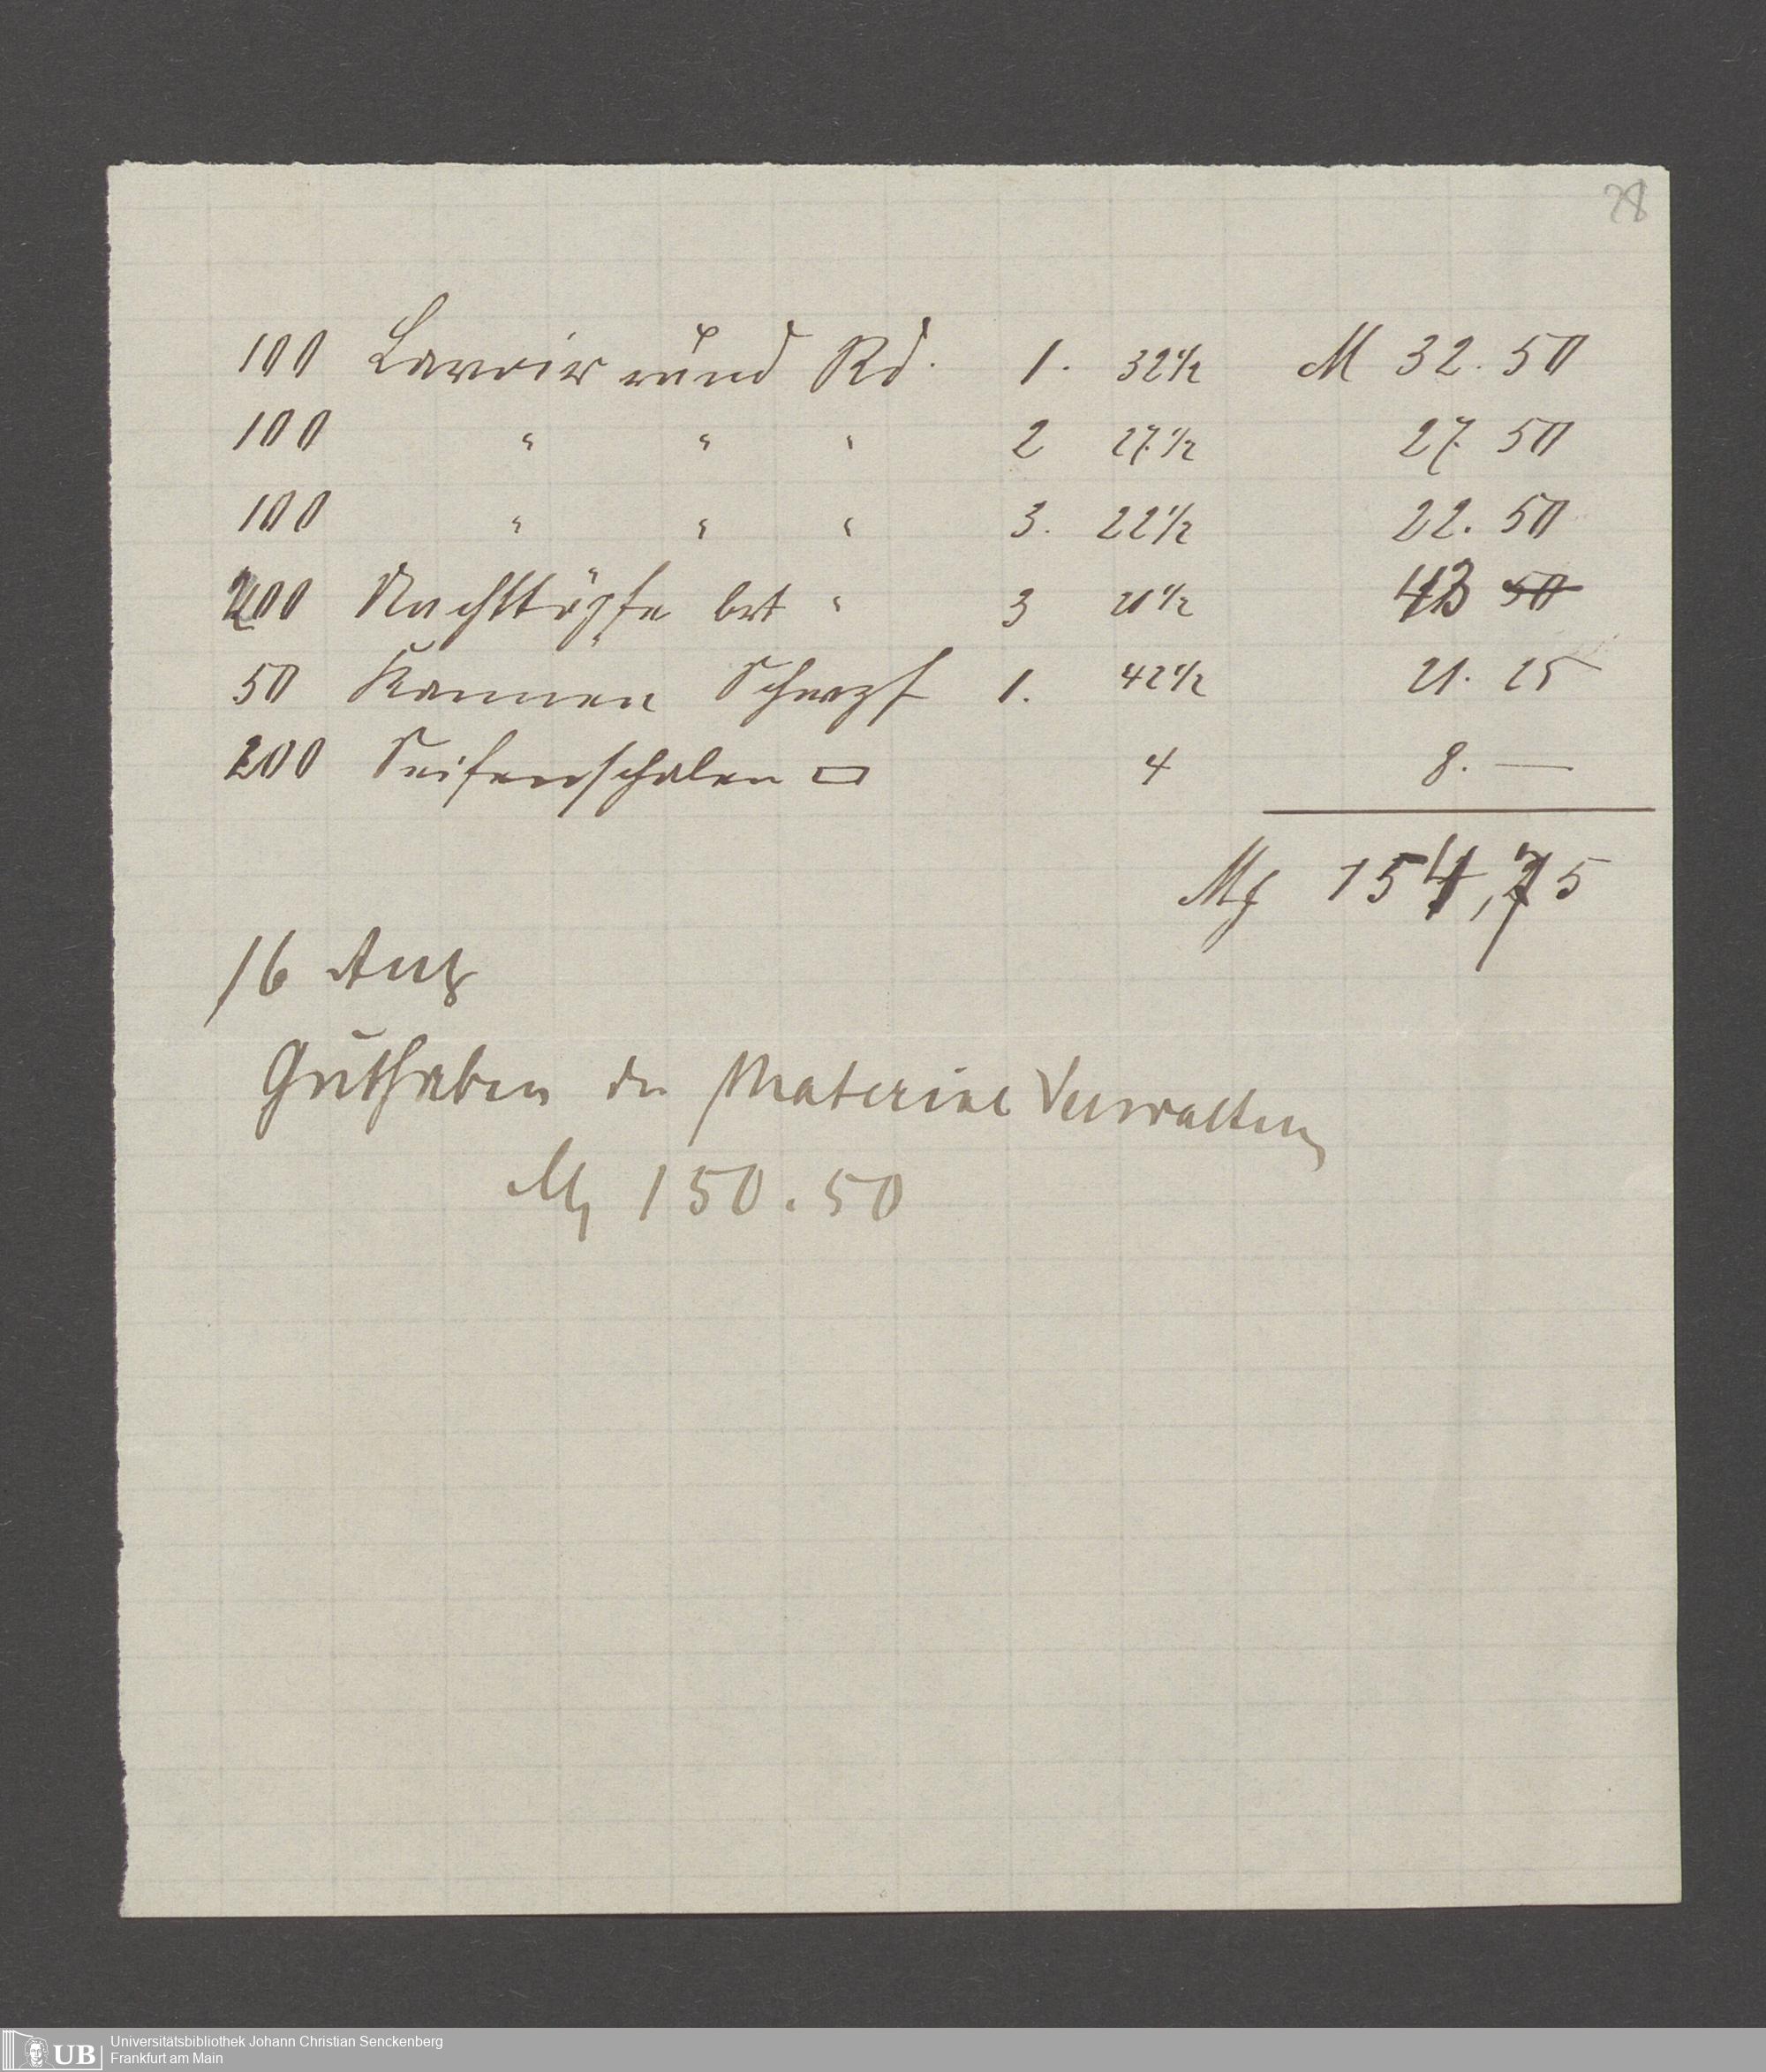 28
100 Lavoir rund Rd. 1. 32 1/2 M 32.50
100 " " " 2 27 1/2 27.50
100 " " " 3. 22 1/2 22.50
200 Nachttöpfe brt " 3 21 1/2 43 50
50 Kannen 1. 42 1/2 21.25
200 Seifenschalen 4 8. —
M 154,75
16 Aug
Guthaben der Material Verwaltung
M 150.50
UB Universitätsbibliothek Johann Christian Senckenberg
Frankfurt am Main